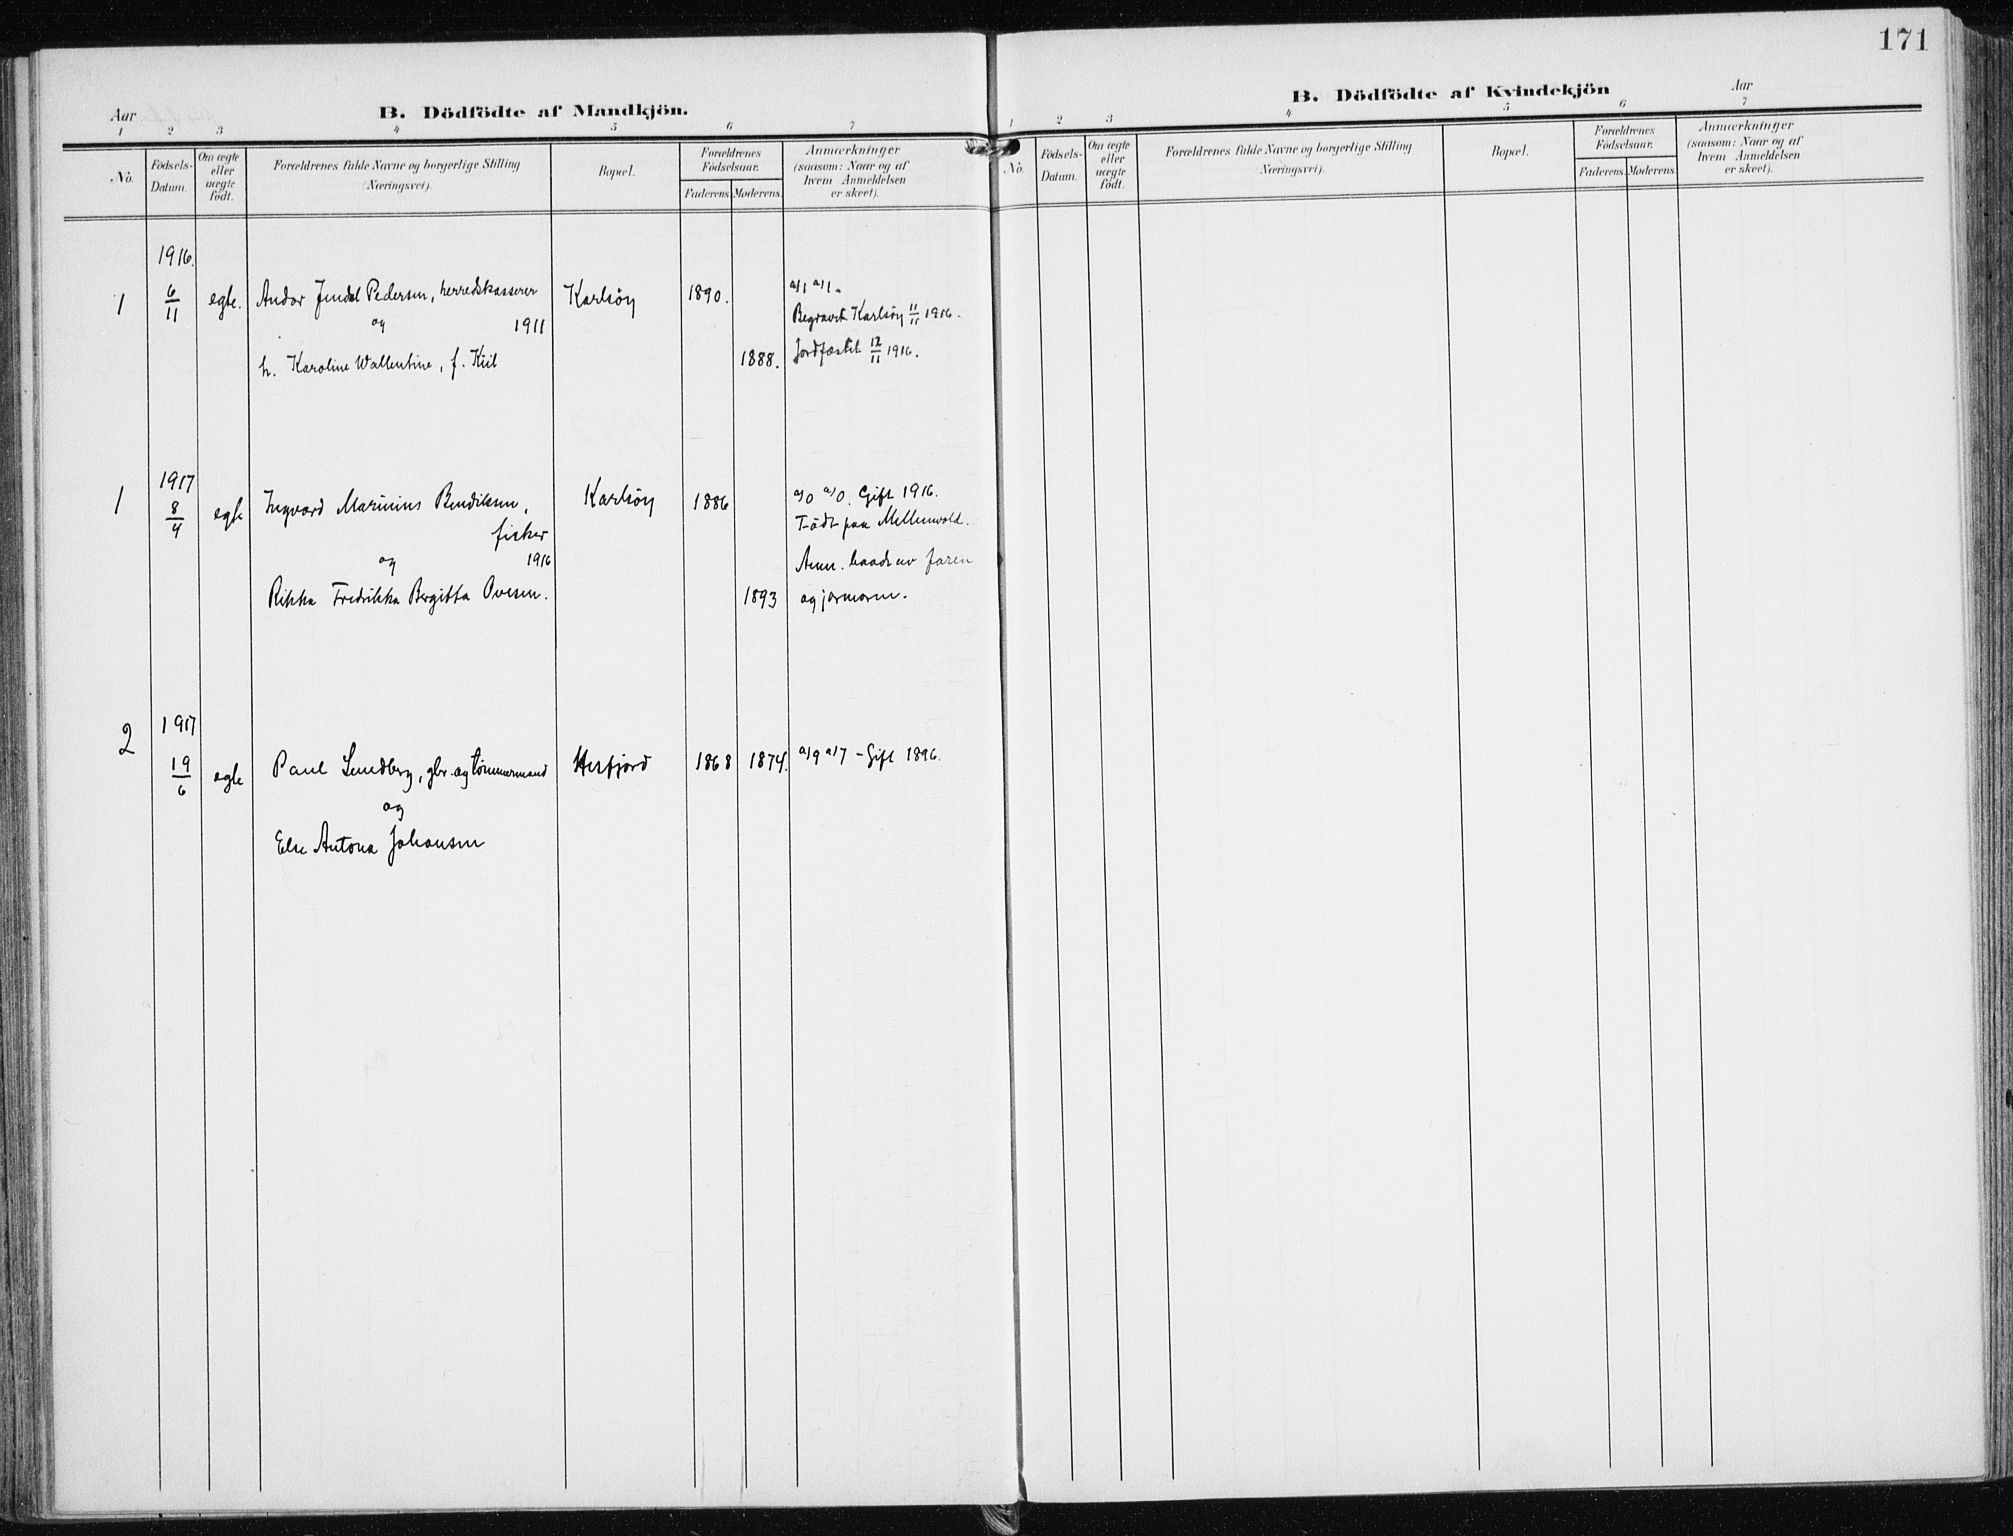 171
Aar
B. Dödfödte af Mandkjön.
1 2 3 4 5 6 7
No.
Födsels-Datum.
Om ægte eller uægte födt.
Forældrenes fulde Navne og borgerlige Stilling (Næringsvei).
Bopæl.
Forældrenes Födselsaar.
Faderens. Moderens.
Anmærkninger (saasom: Naar og af hvem Anmeldelsen er skeet).
1916.
1 6/11 egte. Andor Jendal Pedersen, herredskasserer Karlsöy 1890. a/1 a/1.
og 1911 Begravet Karlsöy 11/11 1916.
h. Karoline Wallentine, f. Kiil 1888. Jordfæstet 12/11 1916.
1917
1 8/4 egte Ingvard Marinius Bendiksen, Karlsöy 1886 a/0 a/0. Gift 1916.
fisker Födt paa Mellemvold.
og 1916 Anm. baade av faren
Rikka Fredrikka Bergitta Ovesen. 1893 og jormoren.
1917
2 19/6 egte Paul Lundberg, gbr. og tömmermand Hesfjord 1868 1874. a/9 a/7 - Gift 1896.
og
Else Antona Johansen
B. Dödfödte af Kvindekjön
Aar
1 2 3 4 5 6 7
No.
Födsels-Datum.
Om ægte eller uægte födt.
Forældrenes fulde Navne og borgerlige Stilling (Næringsvei).
Bopæl.
Forældrenes Födselsaar.
Faderens. Moderens.
Anmærkninger (saasom: Naar og af hvem Anmeldelsen er skeet).